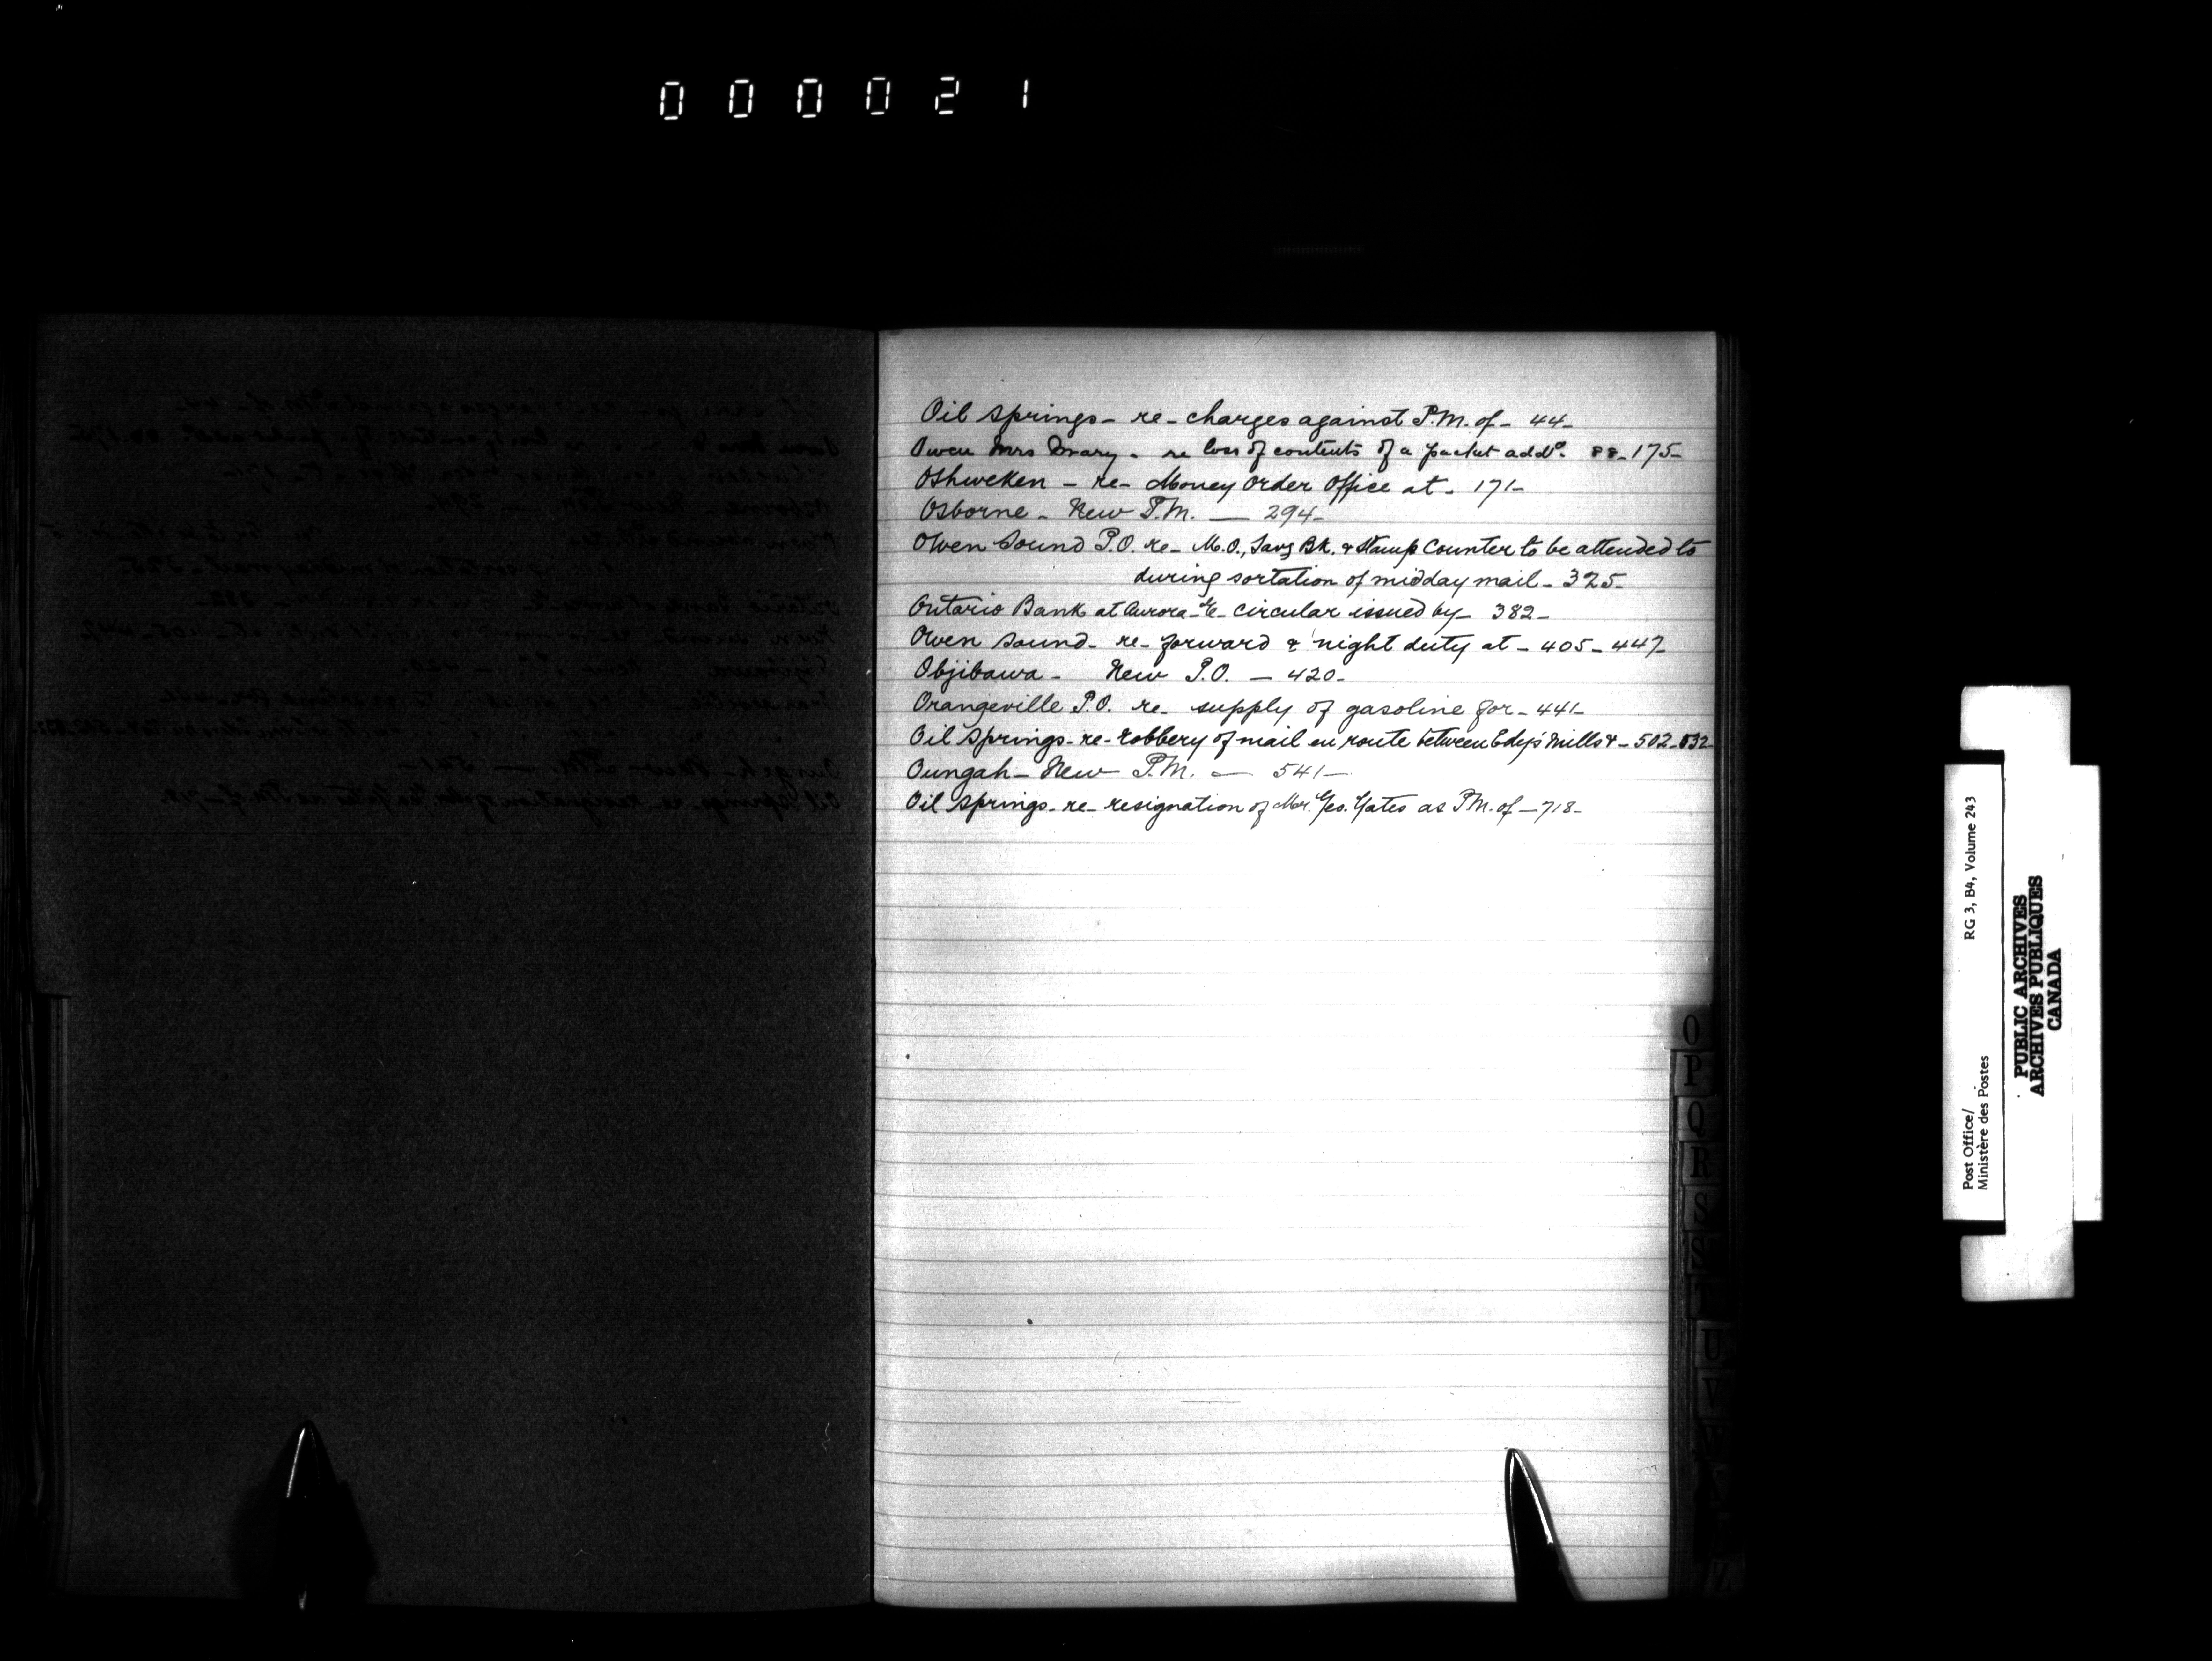 000021
Oil Springs - re - charges against P.M. of - 44 -
Owen Mrs Mary - re loss of contents of a packet addd. 88 - 175 -
Oshweken - re - Money Order Office at - 171 -
Osborne - New P.M. — 294 -
Owen Sound P.O. re - M.O., Savg Bk. & Stamp Counter to be attended to
during sortation of midday mail - 325 -
Ontario Bank at Aurora - re - circular issued by - 382 -
Owen Sound - re - forward & night duty at - 405 - 447 -
Objibawa - New P.O. - 420 -
Orangeville P.O. re - supply of gasoline for - 441 -
Oil Springs - re - robbery of mail en route between Edys' Mills & - 502 - 532 -
Oungah - New P.M. — 541 —
Oil Springs - re - resignation of Mr. Geo. Yates as P.M. of - 718 -
O
P
Q
R
S
S
T
U
V
W
Z
Post Office/
Ministère des Postes
RG 3, B4, Volume 243
PUBLIC ARCHIVES
ARCHIVES PUBLIQUES
CANADA